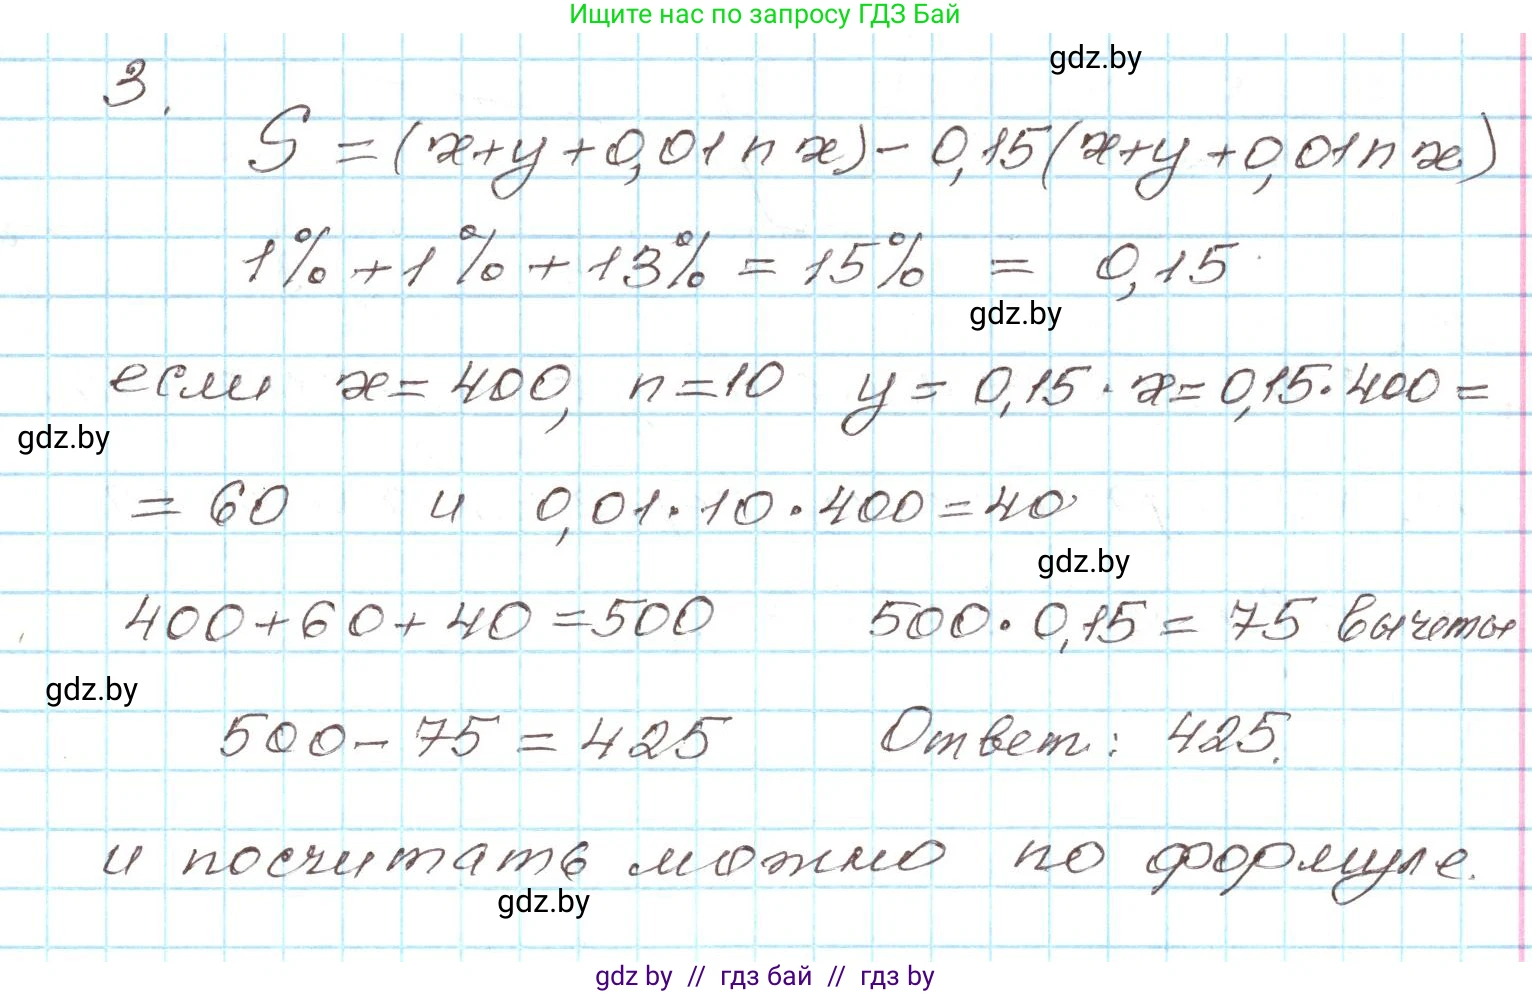 Ищите нас по запросу ГДЗ Бай
gdz.by
3.
S = (x+y+0,01nx) - 0,15(x+y+0,01nx)
1% + 1% + 13% = 15% = 0,15
gdz.by
если x = 400, n = 10 y = 0,15 · x = 0,15 · 400 =
gdz.by
= 60 и 0,01 · 10 · 400 = 40
gdz.by
400 + 60 + 40 = 500 500 · 0,15 = 75 вычеты
gdz.by
500 - 75 = 425 Ответ: 425.
и посчитать можно по формуле.
gdz.by
gdz by // гдз бай // гдз by